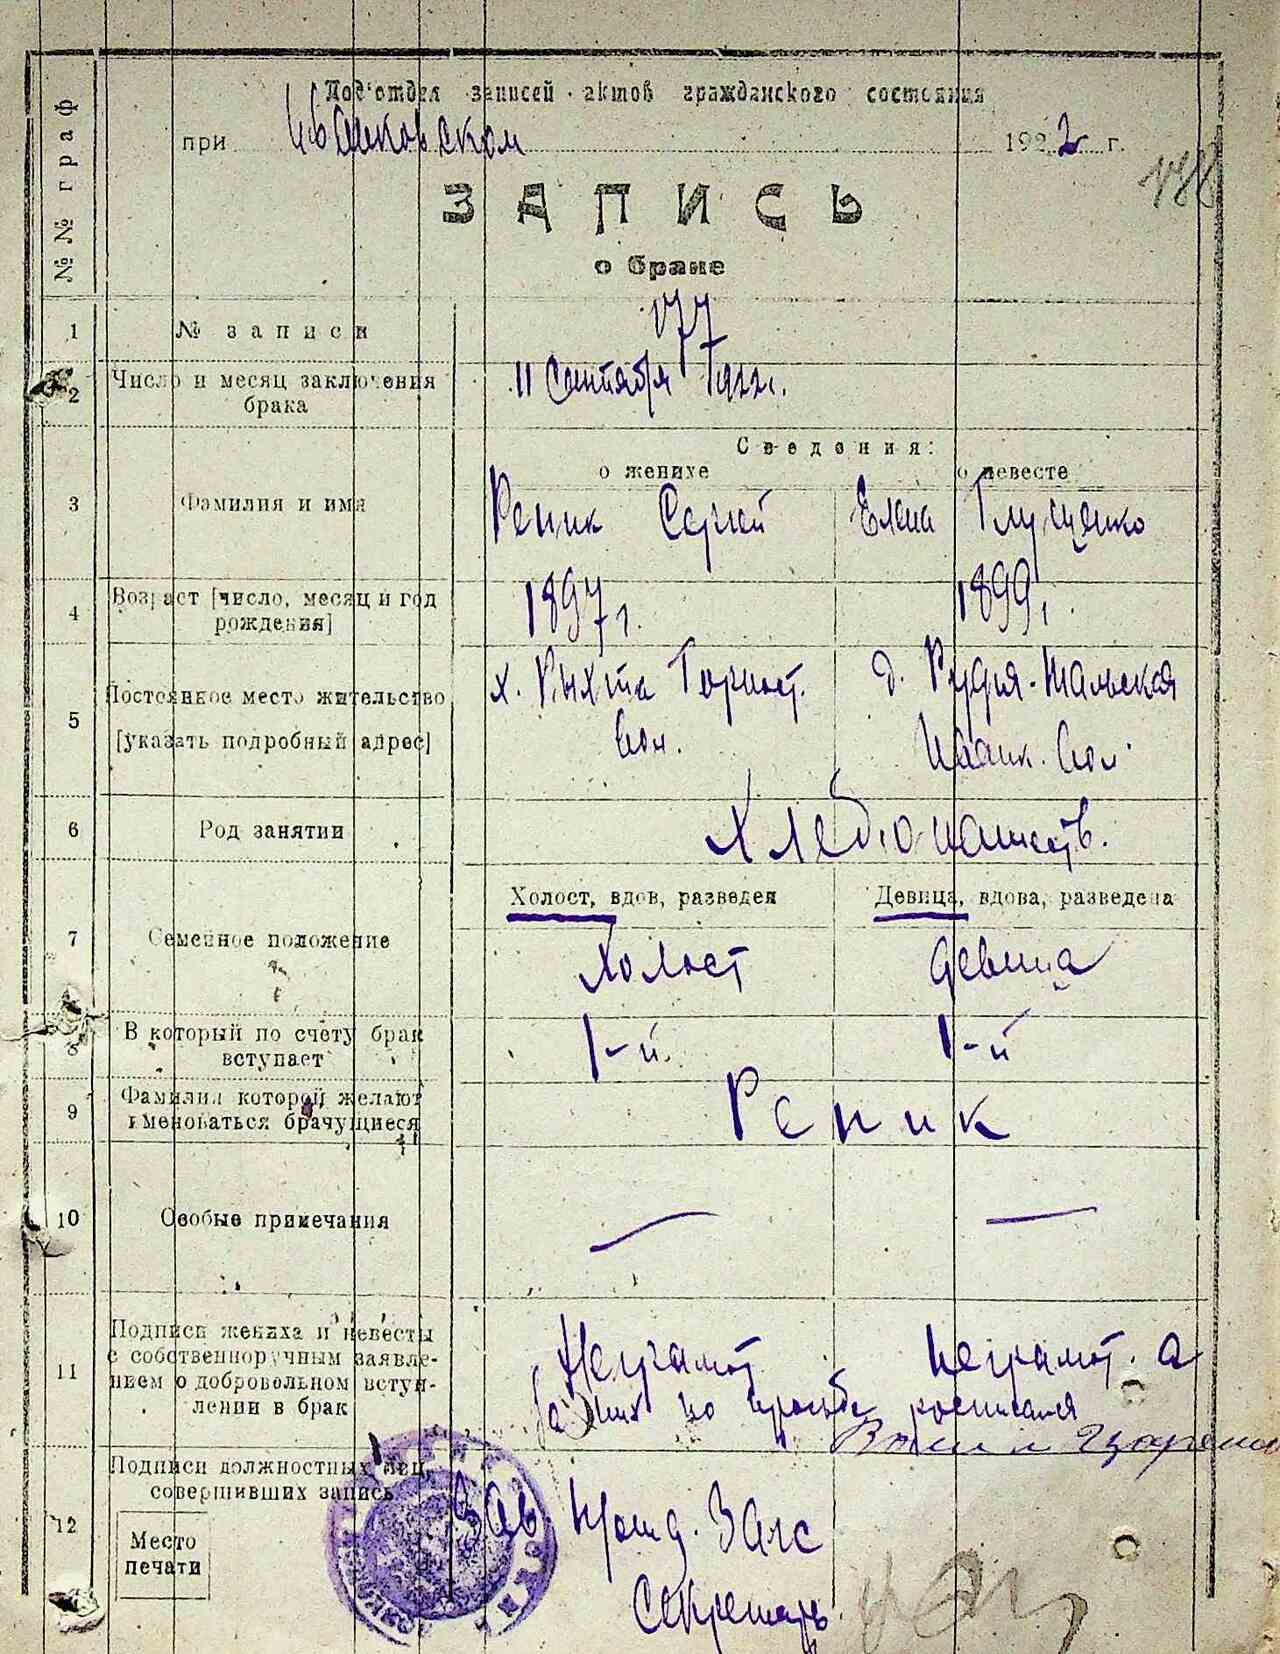 №№ граф
Под'отдел записей актов гражданского состояния
при Иванковском 1922 г.
ЗАПИСЬ
о браке
1 № записи 177
2 Число и месяц заключения брака 11 Сентября 1922 г.
Сведения:
о женихе о невесте
3 Фамилия и имя Реник Сергей Елена Глущенко
4 Возраст [число, месяц и год рождения] 1897 г. 1899 г.
5 Постоянное место жительство
[указать подробный адрес]
х. Рыхта Горност. Вол.
д. Рудня-Тальская Иванк. Вол.
6 Род занятий Хлебопашеств.
Холост, вдов, разведен Девица, вдова, разведена
7 Семейное положение Холост девица
8 В который по счету брак вступает 1-й. 1-й
9 Фамилия которой желают именоваться брачущиеся Реник
10 Особые примечания — —
11 Подписи жениха и невесты с собственноручным заявлением о добровольном вступлении в брак
Неграмот неграмот. а
за них по просьбе росписался
12 Подписи должностных лиц, совершивших запись
Место печати
Зав. Загс
Секретарь